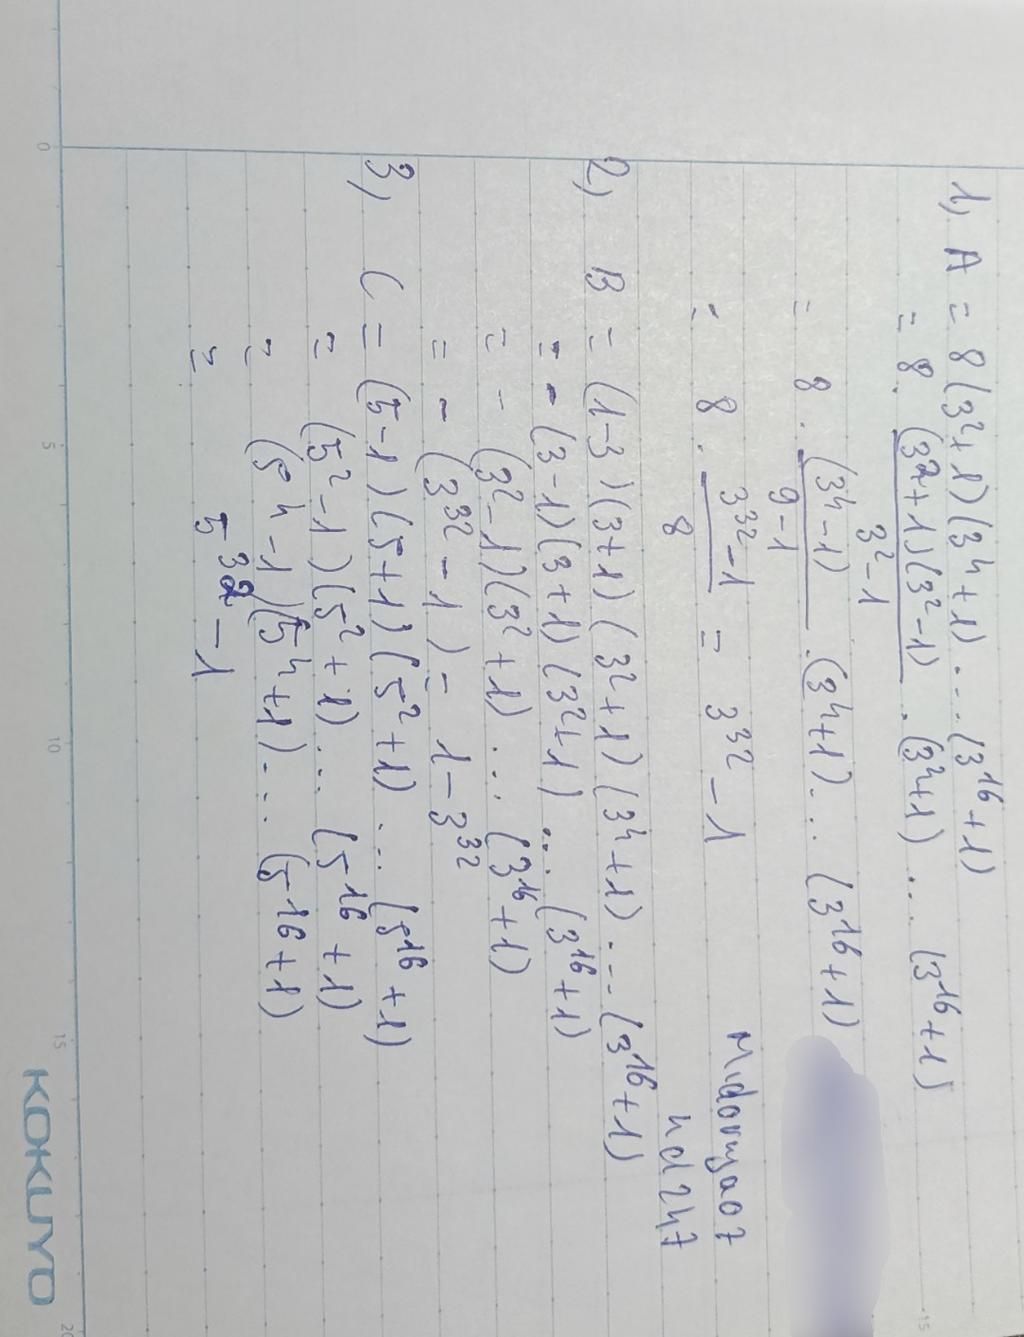 1, A = 8(3²+1)(3⁴+1)....(3¹⁶+1)
= 8. (3²+1)(3²-1) / 3²-1 . (3⁴+1) .... (3¹⁶+1)
= 8 . (3⁴-1) / 9-1 .(3⁴+1)... (3¹⁶+1)
= 8 . 3³²-1 / 8 = 3³² - 1
Midoruyao7
hd247
2, B = (1-3)(3+1)(3²+1)(3⁴+1)....(3¹⁶+1)
= -(3-1)(3+1)(3²+1) .... (3¹⁶+1)
= - (3²-1)(3²+1) ... (3¹⁶+1)
= - (3³²-1) = 1-3³²
3, C = (5-1)(5+1)(5²+1) ... (5¹⁶+1)
= (5²-1)(5²+1)... (5¹⁶+1)
= (5⁴-1)(5⁴+1)... (5¹⁶+1)
= 5³²-1
0
5
10
15
20
15
KOKUYO